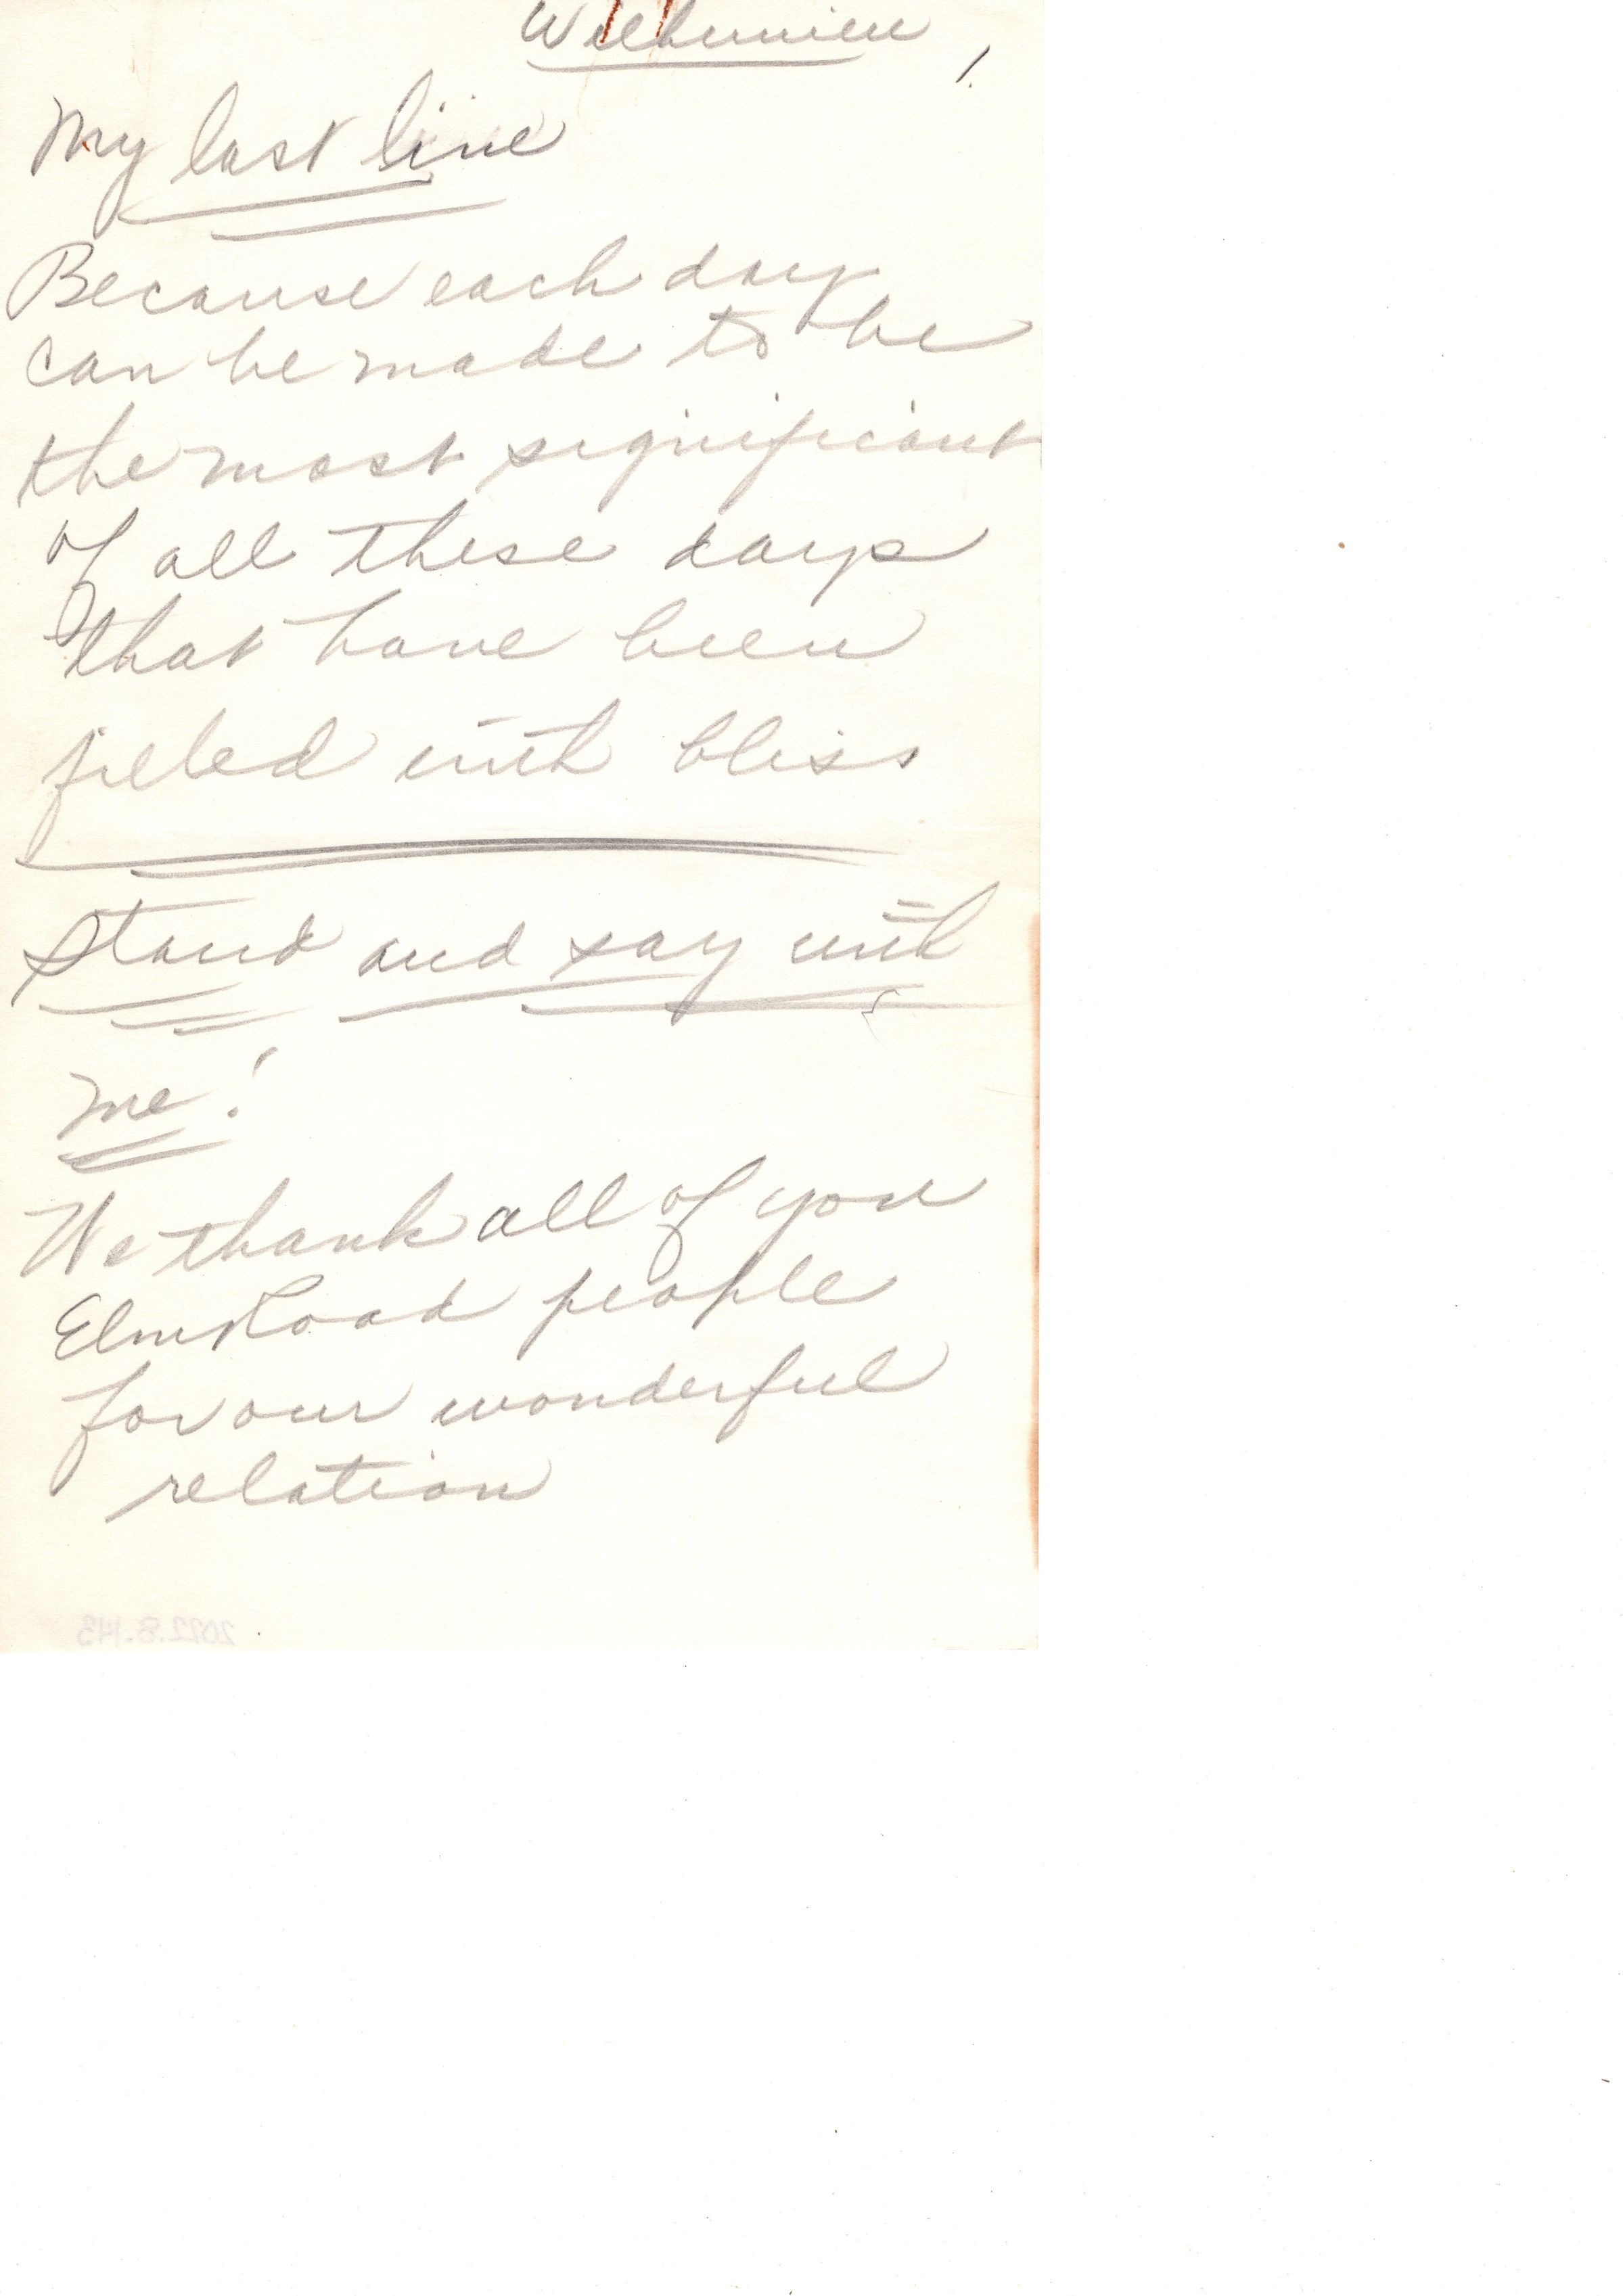 1.
My last line
Because each day
can be made to be
the most significant
of all these days
that have been
filled with bliss
Stand and say with
me!
We thank all of you
Elm Road people
for our wonderful
relation
2022.8.143